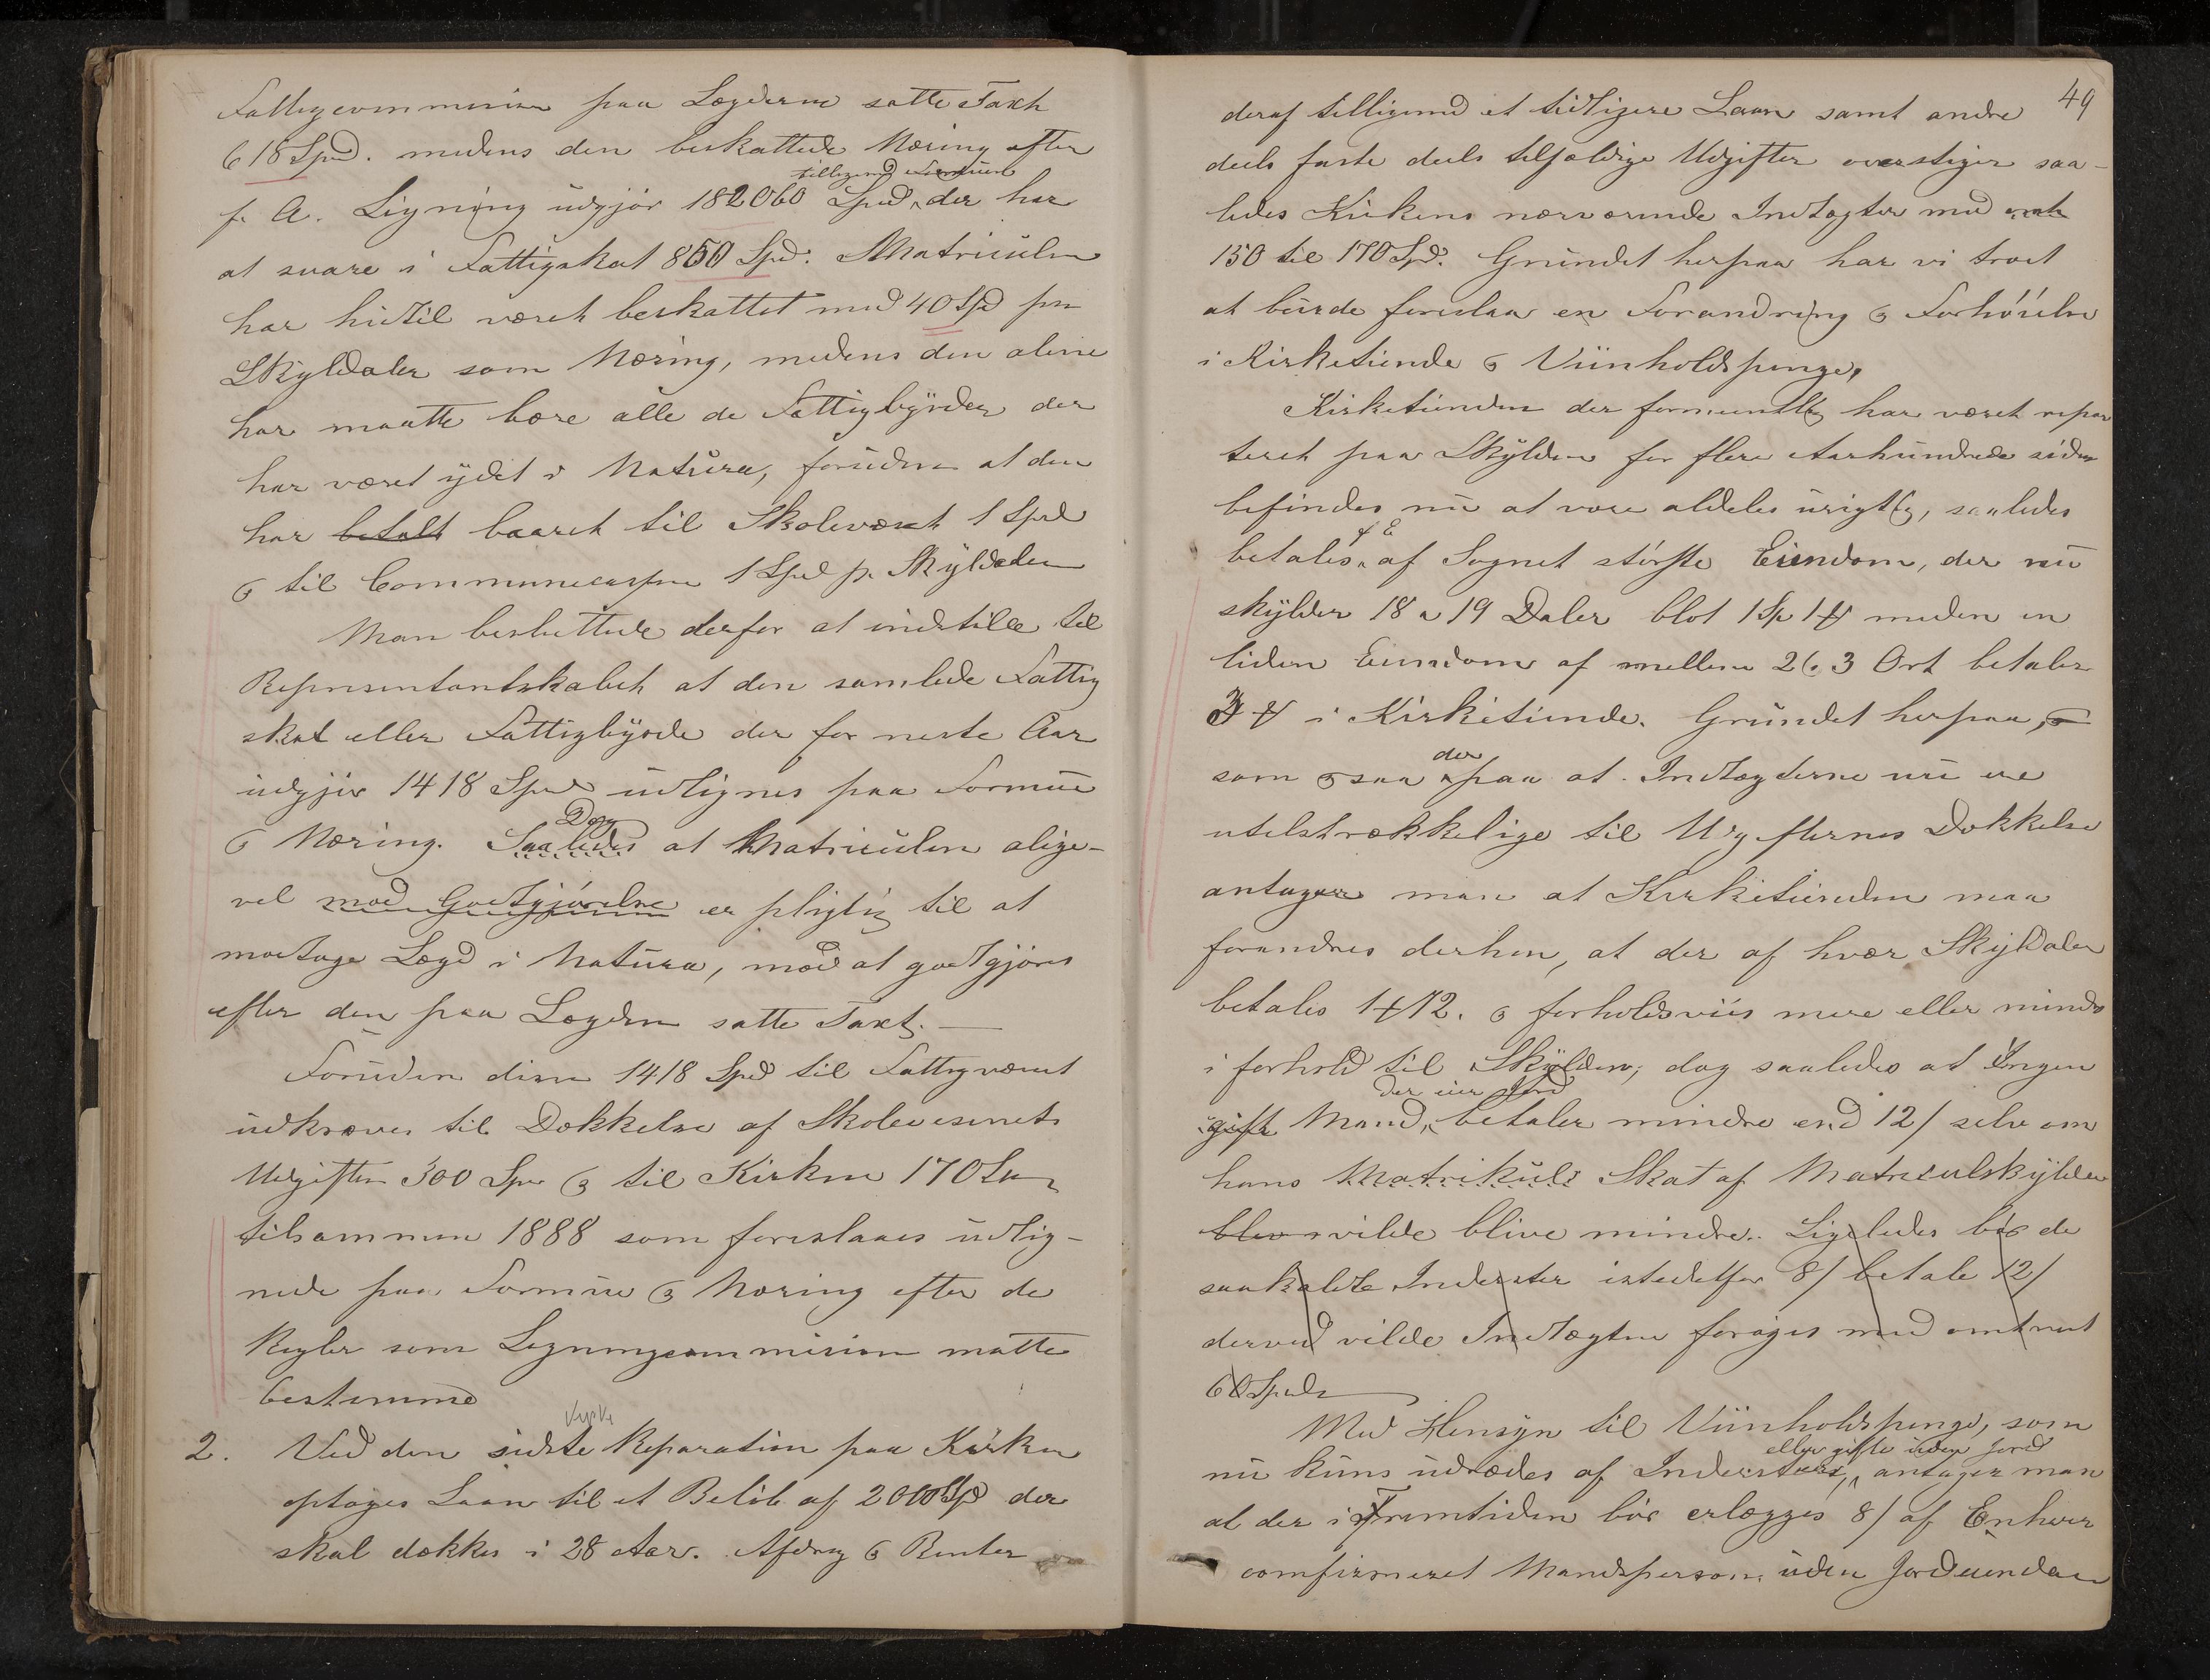 Fattigcommission paa Lægderne satte Taxt
618 Spd. medens den beskattede Næring efter
tilligemed Formuen
f. A. Ligning udgjør 182060 Spd der har
at svare i Fattigskat 850 Spd. Matriculen
har hidtil været beskattet med 40 Spd pr
Skylddaler som Næring, medens den alene
har maatte bære alle de Fattigbyrder der
har været ydet i Natura, foruden at den
har betalt baaret til Skolevæsnet 1 Spd
og til Communecassen 1 Spd pr. Skylddaler
Man besluttede derfor at indstille til
Representantskabet at den samlede Fattig
skat eller Fattigbyrde der for neste Aar
udgjør 1418 Spd udlignes paa Formue
Dog
og Næring. Saaledes at Matriculen alige-
vel mod Godtgjørelse er pligtig til at
modtage Lægd i Natura, mod at godtgjøres
efter den paa Lægden satte Taxt. —
Foruden disse 1418 Spd til Fattigvæsnet
udkræves til Dækkelse af Skolevesenets
Udgifter 300 Spd og til Kirken 170 Spd
tilsammen 1888 som foreslaaes udlig-
nede paa Formue og Næring efter de
Regler som Ligningscommissionen maatte
bestemme
2. Ved den sidste Reparation paa Kirken
optoges Laan til et Beløb af 2000 Spd der
skal dækkes i 28 Aar. Afdrag og Renter
49
deraf tilligemed et tidligere Laan samt andre
deels faste deels tilfældige Udgifter overstiger saa-
ledes Kirkens nærværende Indtægter med omtr
150 til 170 Spd. Grundet herpaa har vi troet
at burde foreslaa en Forandring og Forhøielse
i Kirketiende og Viinholdspenge,
Kirketienden der formentlig har været repar
teret paa Skylden for flere Aarhundrede siden
befindes nu at være aldeles urigtig, saaledes
betales af Sognet største Eiendom, der nu
skylder 18 a 19 Daler blot 1 Sp 1 ₰ meden en
liden Eiendom af mellem 2 og 3 Ort betaler
3 ₰ i Kirketiende. Grundet herpaa, og
der
som ogsaa paa at Indtægterne nu ere
utilstrækkelige til Udgifternes Dækkelse
antager man at Kirketienden maa
forandres derhen, at der af hver Skylddaler
betales 1 ₰ 12. og forholdsviis mere eller mindre
i forhold til Skylden; dog saaledes at Ingen
der eier Jord
gift Mand, betaler mindre end 12/ selv om
hans Matrikuls Skat af Matriculskylden
blev vilde blive mindre. Ligeledes bør de
saakaldte Inderster istedetfor 8/ betale 12/
derved vilde Indtægten forøges med omtrent
60 Spd
Med Hensyn til Viinholdspenge, som
eller gifte uden Jord
nu kuns udredes af Inderster, antager man
at der i Fremtiden bør erlægges 8/ af Enhver
comfirmeret Mandsperson uden Jordeiendom